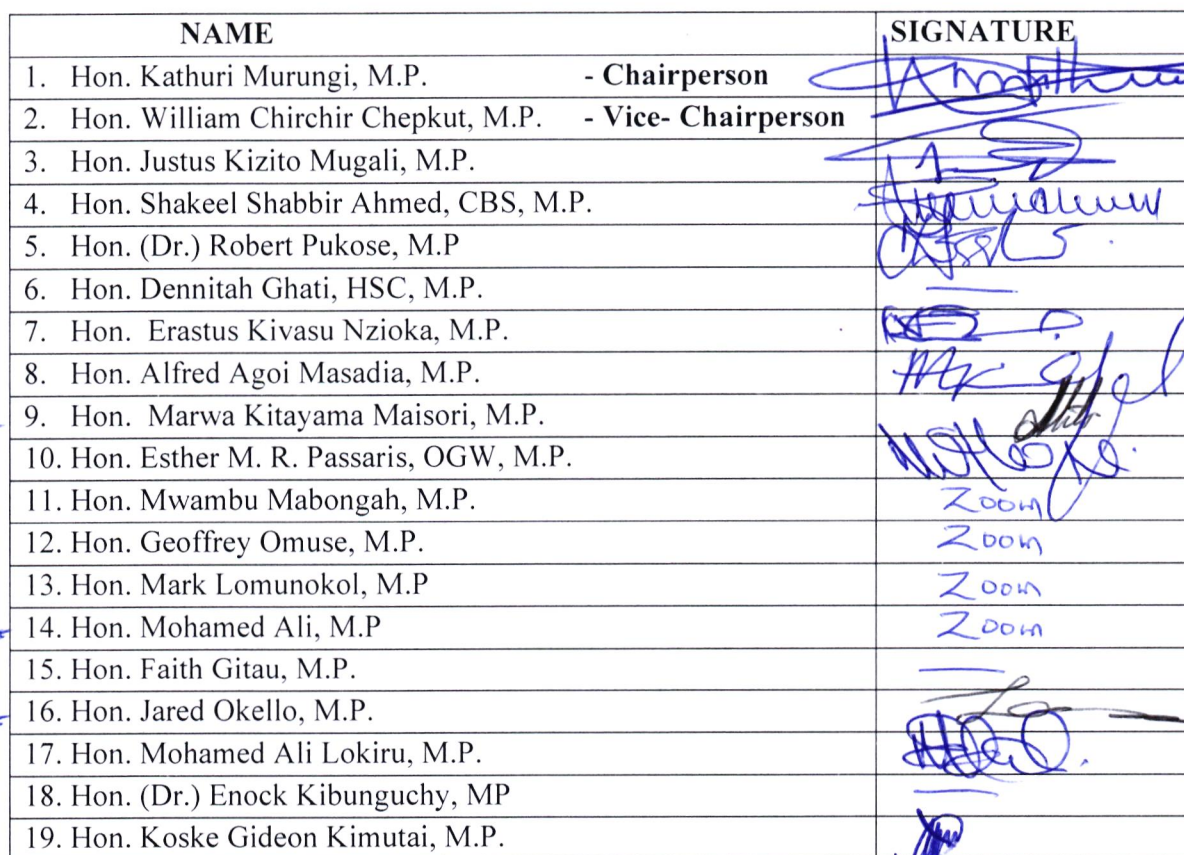 NAME SIGNATURE
1. Hon. Kathuri Murungi, M.P. - Chairperson
2. Hon. William Chirchir Chepkut, M.P. - Vice- Chairperson
3. Hon. Justus Kizito Mugali, M.P.
4. Hon. Shakeel Shabbir Ahmed, CBS, M.P.
5. Hon. (Dr.) Robert Pukose, M.P
6. Hon. Dennitah Ghati, HSC, M.P.
7. Hon. Erastus Kivasu Nzioka, M.P.
8. Hon. Alfred Agoi Masadia, M.P.
9. Hon. Marwa Kitayama Maisori, M.P.
10. Hon. Esther M. R. Passaris, OGW, M.P.
11. Hon. Mwambu Mabongah, M.P. Zoom
12. Hon. Geoffrey Omuse, M.P. Zoom
13. Hon. Mark Lomunokol, M.P Zoom
14. Hon. Mohamed Ali, M.P Zoom
15. Hon. Faith Gitau, M.P.
16. Hon. Jared Okello, M.P.
17. Hon. Mohamed Ali Lokiru, M.P.
18. Hon. (Dr.) Enock Kibunguchy, MP
19. Hon. Koske Gideon Kimutai, M.P.